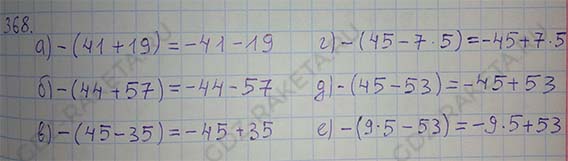 368.
а) -(41+19) = -41-19
б) -(44+57) = -44-57
в) -(45-35) = -45+35
г) -(45-7·5) = -45+7·5
д) -(45-53) = -45+53
е) -(9·5-53) = -9·5+53
GDZ-RAKETA.RU